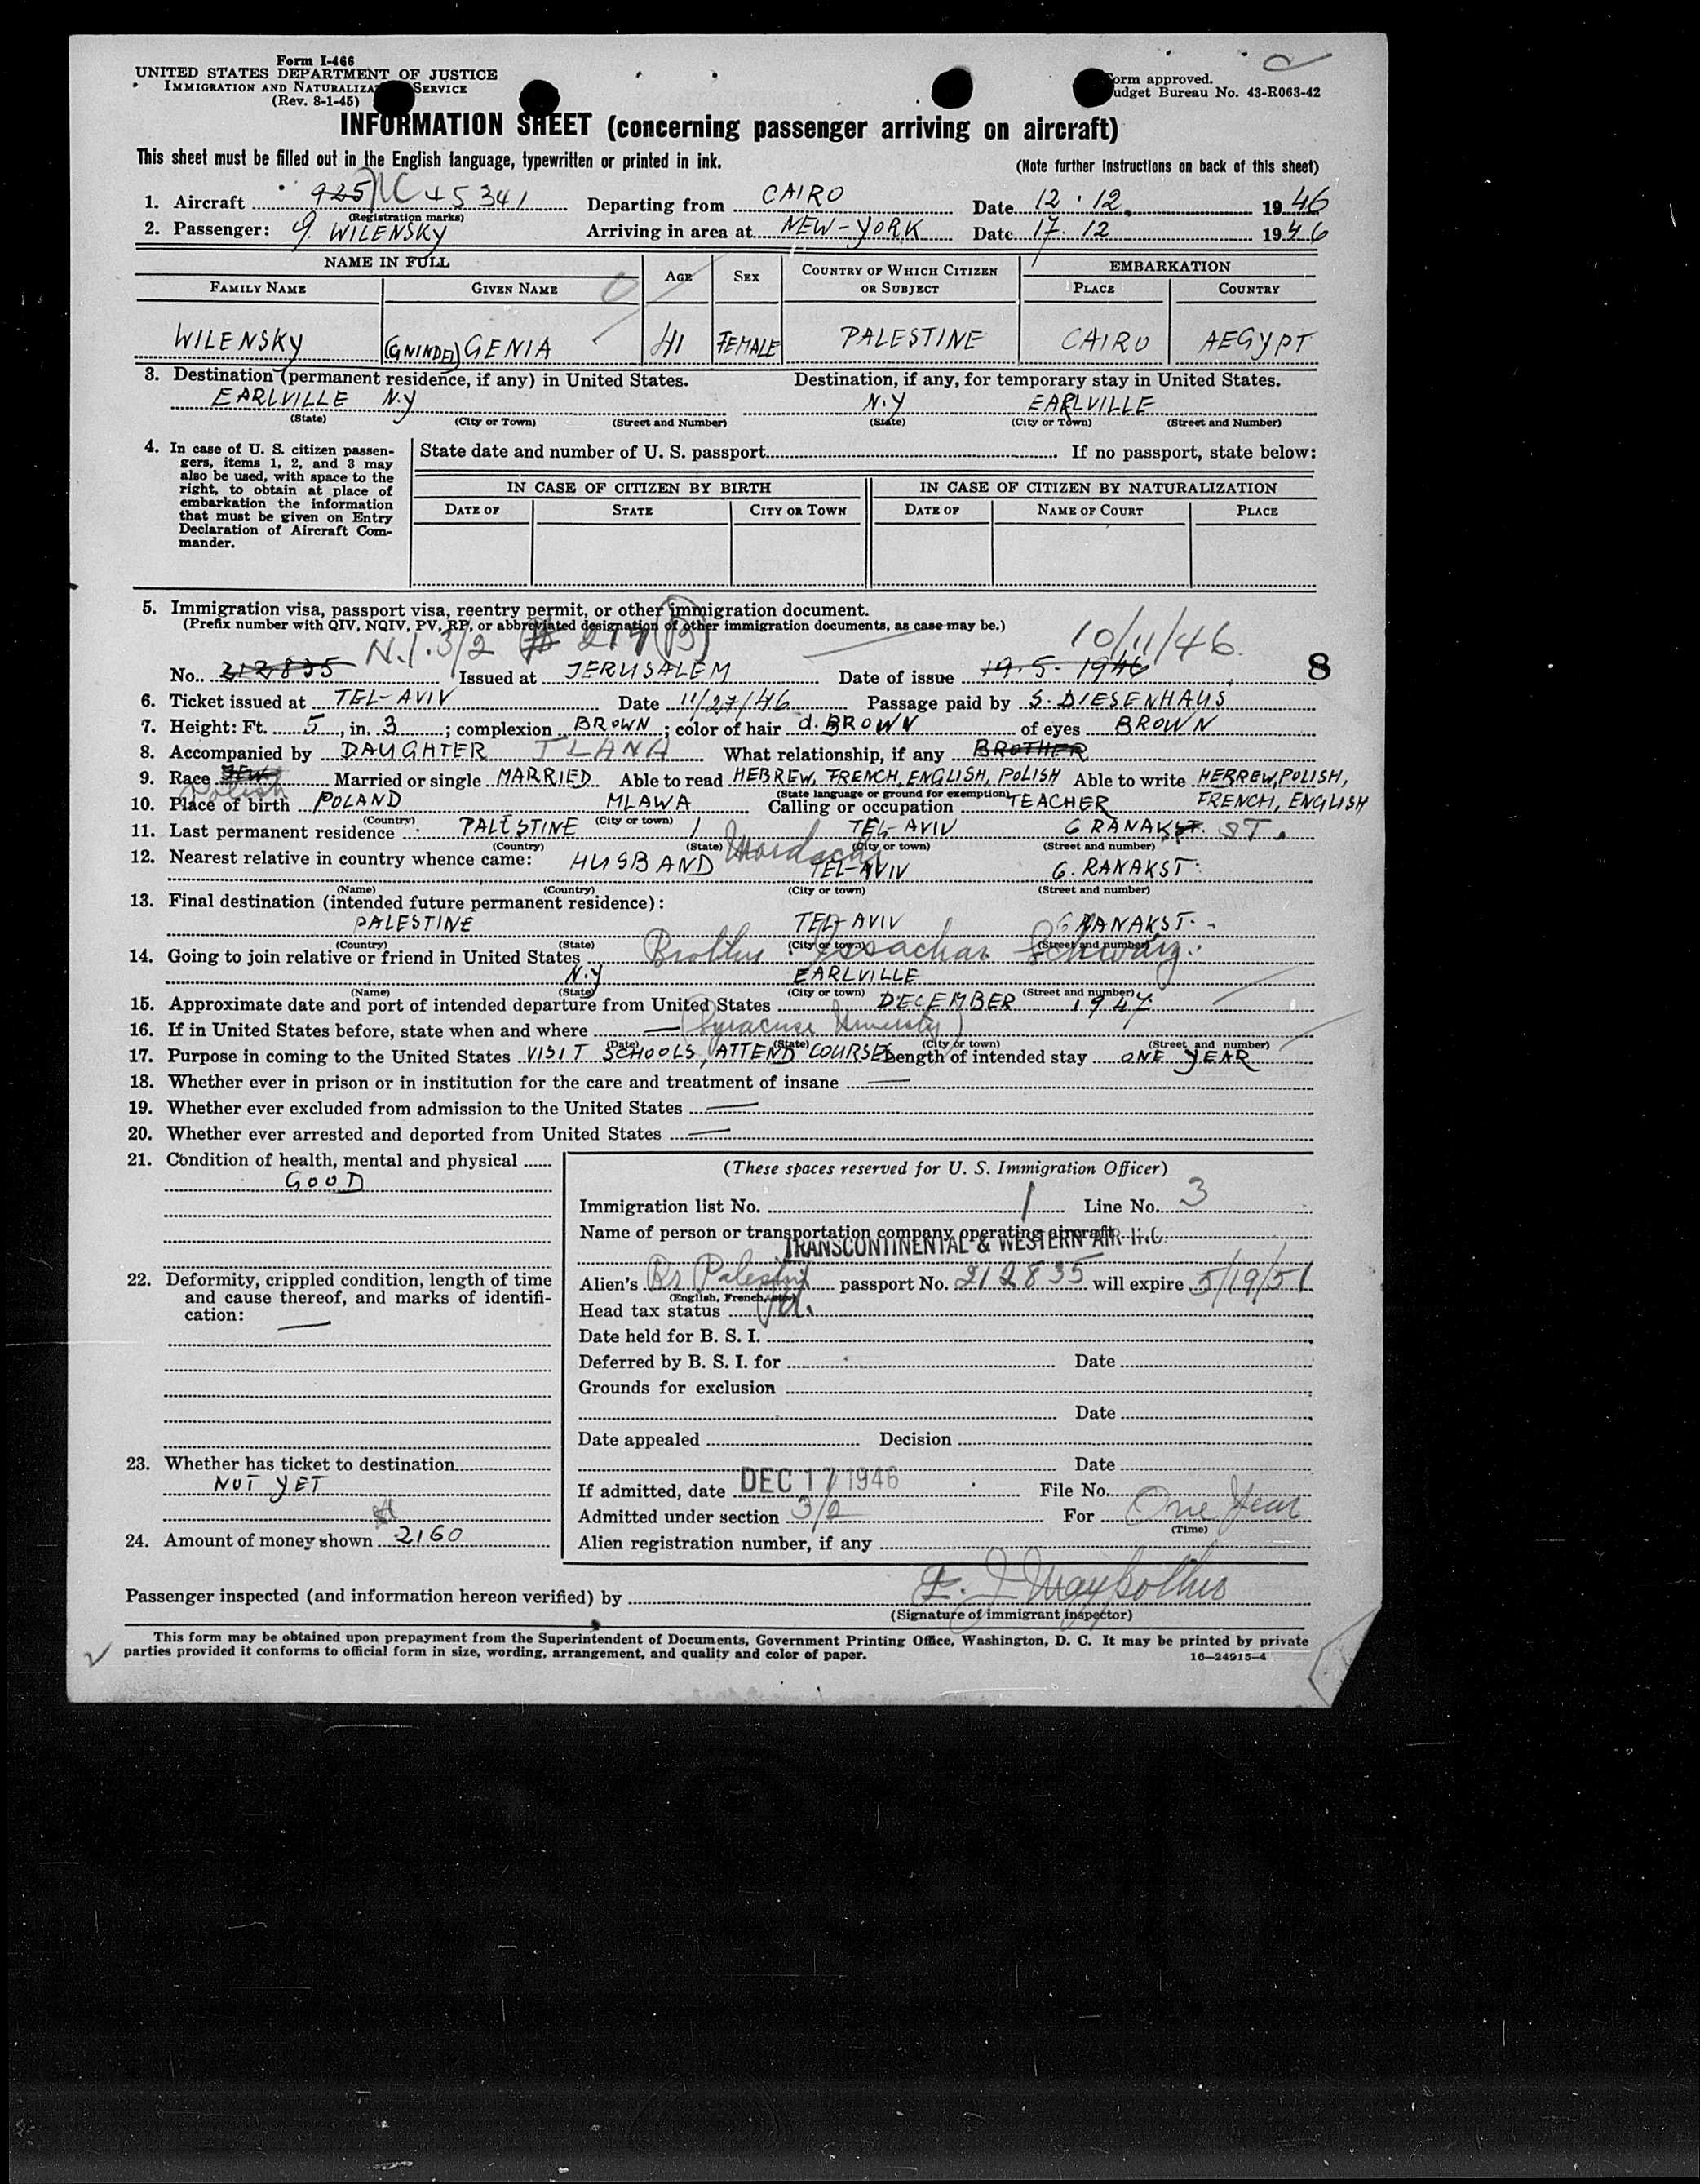 Form I-466
UNITED STATES DEPARTMENT OF JUSTICE
IMMIGRATION AND NATURALIZATION SERVICE
(Rev. 8-1-45)
Form approved.
Budget Bureau No. 43-R063-42
INFORMATION SHEET (concerning passenger arriving on aircraft)
This sheet must be filled out in the English language, typewritten or printed in ink.
(Note further instructions on back of this sheet)
1. Aircraft 925 NC 45341 Departing from CAIRO Date 12.12. 1946
(Registration marks)
2. Passenger: G WILENSKY Arriving in area at NEW-YORK Date 17.12 1946
NAME IN FULL AGE SEX COUNTRY OF WHICH CITIZEN OR SUBJECT EMBARKATION
FAMILY NAME GIVEN NAME PLACE COUNTRY
WILENSKY (GNINDEL) GENIA 41 FEMALE PALESTINE CAIRO AEGYPT
3. Destination (permanent residence, if any) in United States. Destination, if any, for temporary stay in United States.
EARLVILLE N.Y N.Y EARLVILLE
(State) (City or Town) (Street and Number) (State) (City or Town) (Street and Number)
4. In case of U. S. citizen passengers, items 1, 2, and 3 may also be used, with space to the right, to obtain at place of embarkation the information that must be given on Entry Declaration of Aircraft Commander.
State date and number of U. S. passport If no passport, state below:
IN CASE OF CITIZEN BY BIRTH IN CASE OF CITIZEN BY NATURALIZATION
DATE OF STATE CITY OR TOWN DATE OF NAME OF COURT PLACE
5. Immigration visa, passport visa, reentry permit, or other immigration document.
(Prefix number with QIV, NQIV, PV, RP, or abbreviated designation of other immigration documents, as case may be.)
N.I. 3/2 # 217 (B) 10/11/46.
No. 212835 Issued at JERUSALEM Date of issue 19.5.1946 8
6. Ticket issued at TEL-AVIV Date 11/27/46 Passage paid by S. DIESENHAUS
7. Height: Ft. 5, in. 3; complexion BROWN; color of hair d. BROWN of eyes BROWN
8. Accompanied by DAUGHTER ILANA What relationship, if any BROTHER
9. Race JEW Married or single MARRIED Able to read HEBREW, FRENCH, ENGLISH, POLISH Able to write HEBREW, POLISH,
Polish (State language or ground for exemption) FRENCH, ENGLISH
10. Place of birth POLAND MLAWA Calling or occupation TEACHER
(Country) (City or town)
11. Last permanent residence PALESTINE TEL-AVIV 6 RANAKST. ST.
(Country) (State) (City or town) (Street and number)
12. Nearest relative in country whence came: HUSBAND Mordachai TEL-AVIV 6. RANAKST.
(Name) (Country) (City or town) (Street and number)
13. Final destination (intended future permanent residence):
PALESTINE TEL-AVIV 6 RANAKST.
(Country) (State) (City or town) (Street and number)
14. Going to join relative or friend in United States Brother Issachar Schwarz.
N.Y EARLVILLE
(Name) (State) (City or town) (Street and number)
15. Approximate date and port of intended departure from United States DECEMBER 1947.
16. If in United States before, state when and where — (Syracuse University)
(Date) (State) (City or town) (Street and number)
17. Purpose in coming to the United States VISIT SCHOOLS, ATTEND COURSES Length of intended stay ONE YEAR
18. Whether ever in prison or in institution for the care and treatment of insane —
19. Whether ever excluded from admission to the United States —
20. Whether ever arrested and deported from United States —
21. Condition of health, mental and physical
GOOD
22. Deformity, crippled condition, length of time and cause thereof, and marks of identification:
—
23. Whether has ticket to destination
NOT YET
24. Amount of money shown 2160
(These spaces reserved for U. S. Immigration Officer)
Immigration list No. 1 Line No. 3
Name of person or transportation company operating aircraft
TRANSCONTINENTAL & WESTERN AIR INC.
Alien's Br Palestine passport No. 212835 will expire 5/19/51
(English, French, etc.)
Head tax status Pd.
Date held for B. S. I.
Deferred by B. S. I. for Date
Grounds for exclusion
Date
Date appealed Decision
Date
If admitted, date DEC 17 1946 File No.
Admitted under section 3/2 For One Year
(Time)
Alien registration number, if any
Passenger inspected (and information hereon verified) by
(Signature of immigrant inspector)
This form may be obtained upon prepayment from the Superintendent of Documents, Government Printing Office, Washington, D. C. It may be printed by private
parties provided it conforms to official form in size, wording, arrangement, and quality and color of paper. 16—24915-4